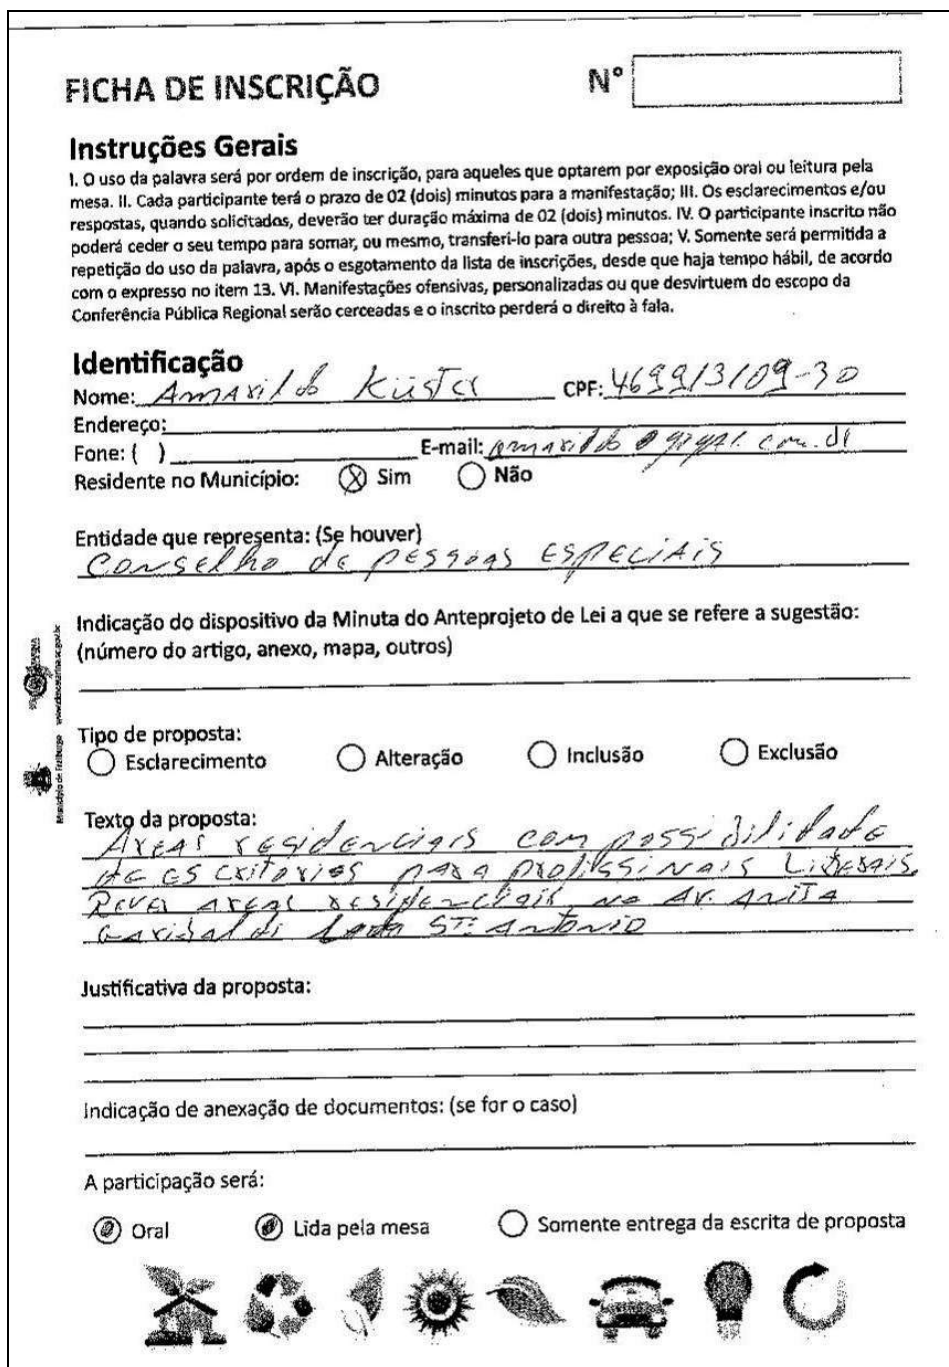 FICHA DE INSCRIÇÃO
N°
Instruções Gerais
I. O uso da palavra será por ordem de inscrição, para aqueles que optarem por exposição oral ou leitura pela
mesa. II. Cada participante terá o prazo de 02 (dois) minutos para a manifestação; III. Os esclarecimentos e/ou
respostas, quando solicitados, deverão ter duração máxima de 02 (dois) minutos. IV. O participante inscrito não
poderá ceder o seu tempo para somar, ou mesmo, transferi-lo para outra pessoa; V. Somente será permitida a
repetição do uso da palavra, após o esgotamento da lista de inscrições, desde que haja tempo hábil, de acordo
com o expresso no item 13. VI. Manifestações ofensivas, personalizadas ou que desvirtuem do escopo da
Conferência Pública Regional serão cerceadas e o inscrito perderá o direito à fala.
Identificação
Nome: Amarildo Küster CPF: 469913109-30
Endereço:
Fone: ( ) E-mail: amarildo@
Residente no Município: Sim Não
Entidade que representa: (Se houver)
Conselho de pessoas ESPECIAIS
Indicação do dispositivo da Minuta do Anteprojeto de Lei a que se refere a sugestão:
(número do artigo, anexo, mapa, outros)
Município de Fraiburgo
Tipo de proposta:
Esclarecimento Alteração Inclusão Exclusão
Texto da proposta:
Areas residenciais com possibilidade
de escritorios para profissinais Liberais.
Rever areas residenciais na Av. Anita
Garibaldi Lado Sto Antonio
Justificativa da proposta:
Indicação de anexação de documentos: (se for o caso)
A participação será:
Oral Lida pela mesa Somente entrega da escrita de proposta